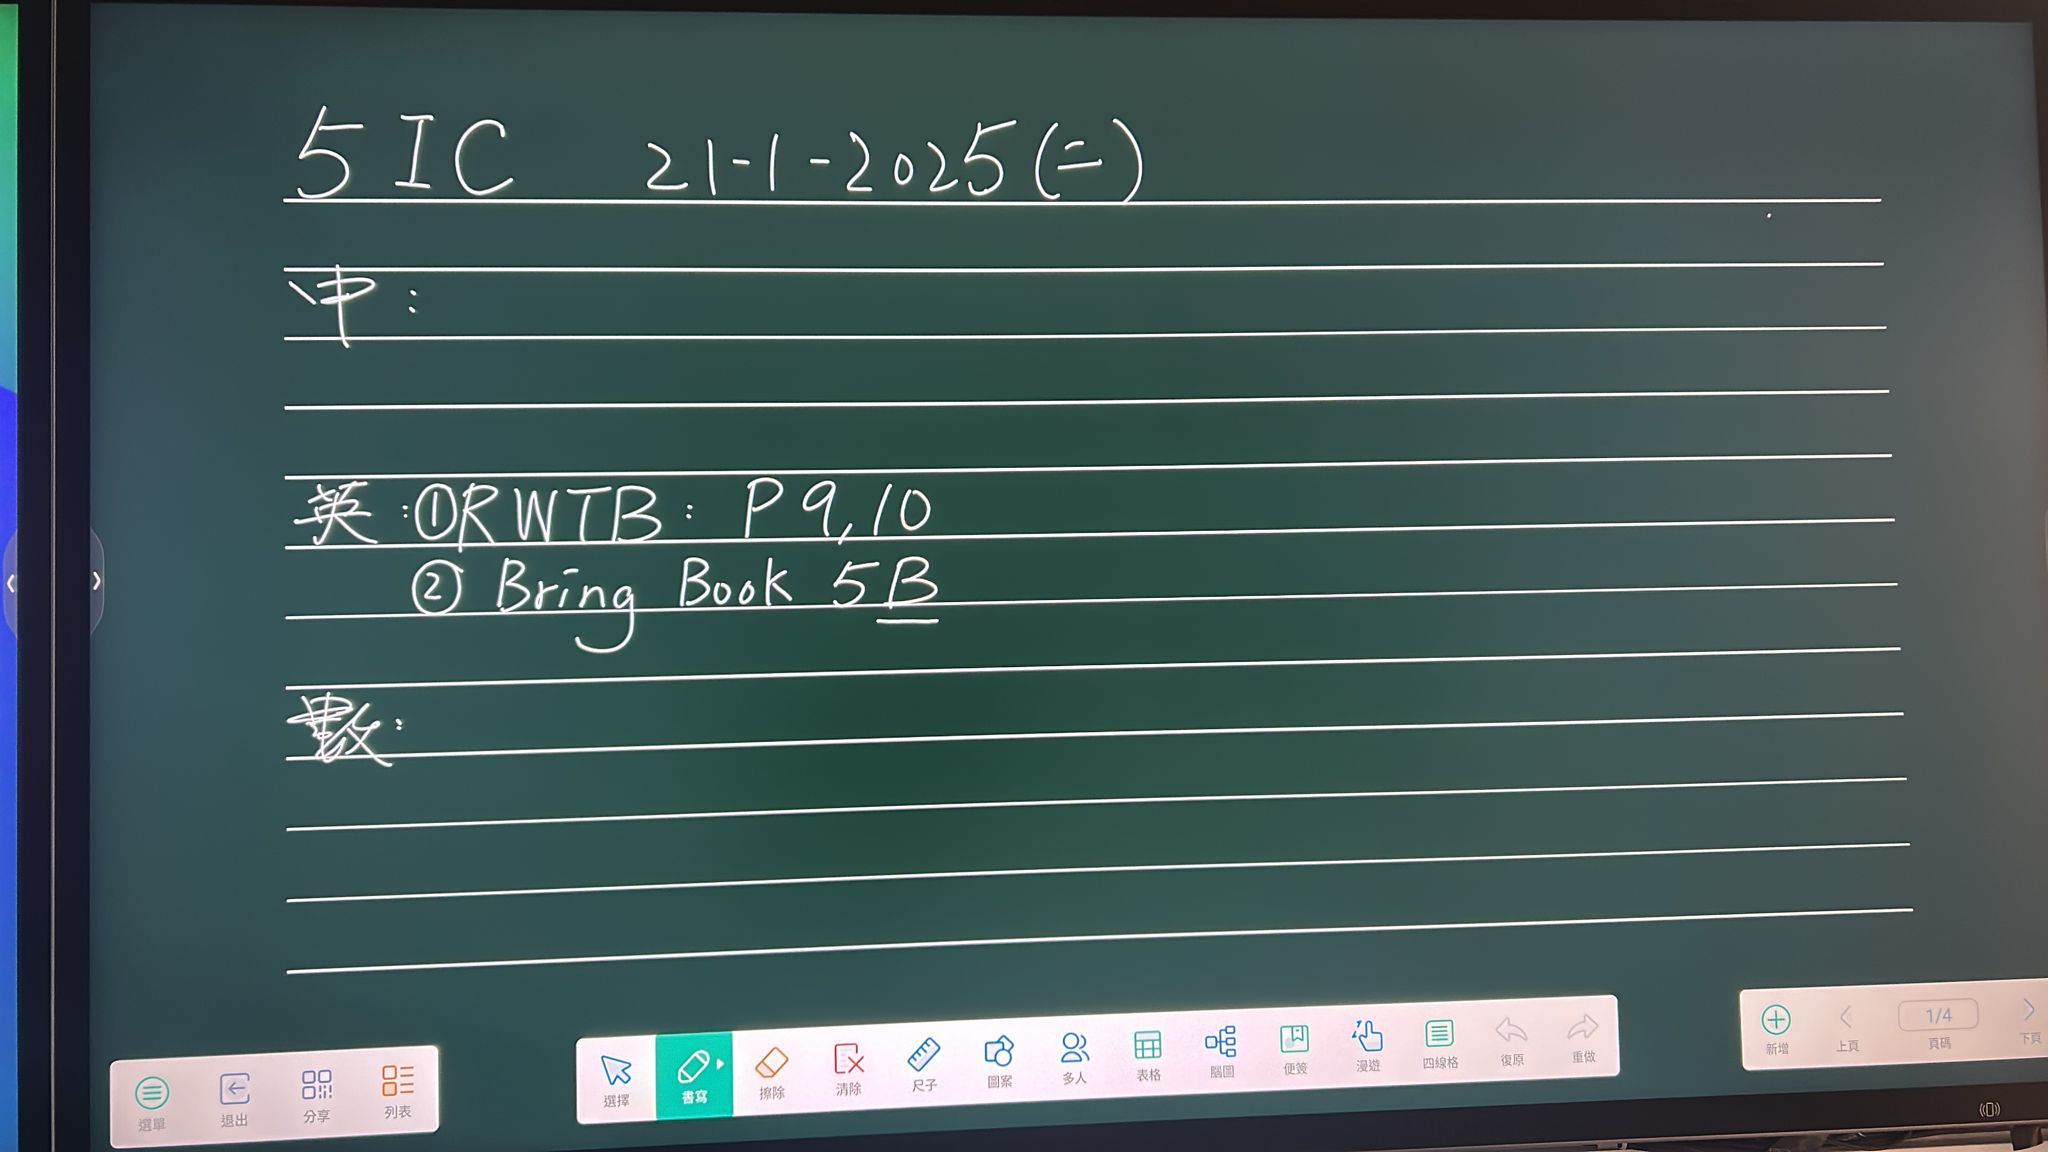 5IC 21-1-2025(二)
中:
英:①RWTB: P9,10
② Bring Book 5B
數:
選單 退出 分享 列表
選擇 書寫 擦除 清除 尺子 圖案 多人 表格 腦圖 便簽 漫遊 四線格 復原 重做
新增 上頁 1/4 頁碼 下頁